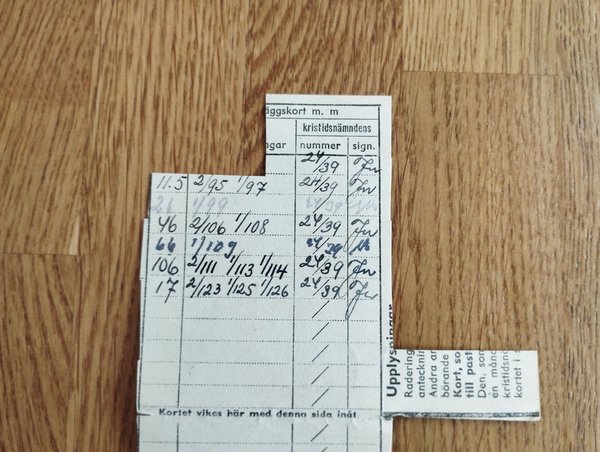 äggskort m. m
kristidsnämndens
ngar nummer sign.
24/39 Jn
11.5 2/95 1/97 24/39 Jn
26 1/99
46 2/106 1/108 24/39 Jn
66 1/109 24/39
106 2/111 1/113 1/114 24/39 Jn
17 2/123 1/125 1/126 24/39 Jn
Kortet vikes här med denna sida inåt
Upplysningar
Radering
anteckni
Andra ar
börande
Kort, so
till past
Den, som
en måna
kristidsnä
kortet i